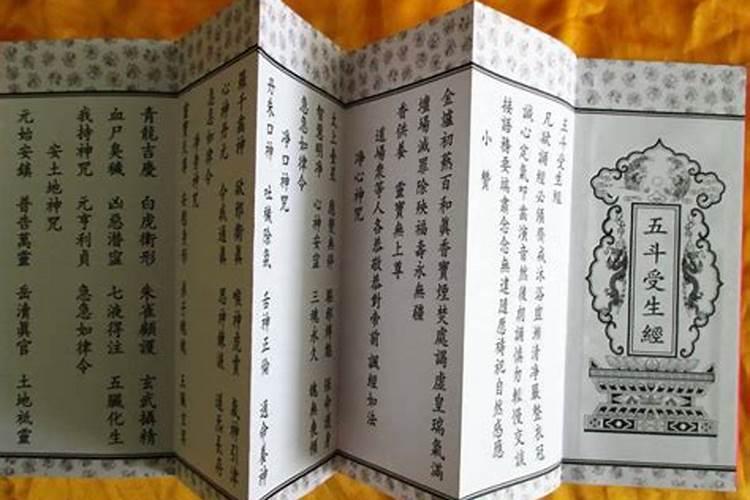 五斗受生經
五斗受生經
凡欲誦經必須齋戒沐浴盥漱清淨嚴整衣冠
誠心定氣叩齒演音然後朗誦慎勿輕慢交談
接語務要端肅念念無違隨應禱祀自然感應
小贊
金爐初爇百和眞香寶煙焚處謁虛皇瑞氣滿
壇場滅罪除殃福壽永無疆
香供養 靈寶無上尊
道場衆等人各恭敬恭對帝前 誦經如法
淨心神咒
太上臺星 應變無停 驅邪縛魅 保命護身
智慧明淨 心神安寧 三魂永久 魄無喪傾
急急如律令
淨口神咒
丹朱口神 吐穢除氛 舌神正倫 通命養神
羅千齒神 欲邪衛眞 喉神虎賁 氣神引津
心神丹元 令我通眞 思神鍊液 道炁長存
急急如律令
淨身神咒
靈寶天尊 安慰身形 弟子魂魄 五臟玄冥
青龍吉慶 白虎衛形 朱雀顧護 玄武攝精
血尸臭穢 凶惡潛寍 七液得注 五臟化生
我持神咒 元亨利貞 急急如律令
安土地神咒
元始安鎮 普告萬靈 岳清眞官 土地祗靈